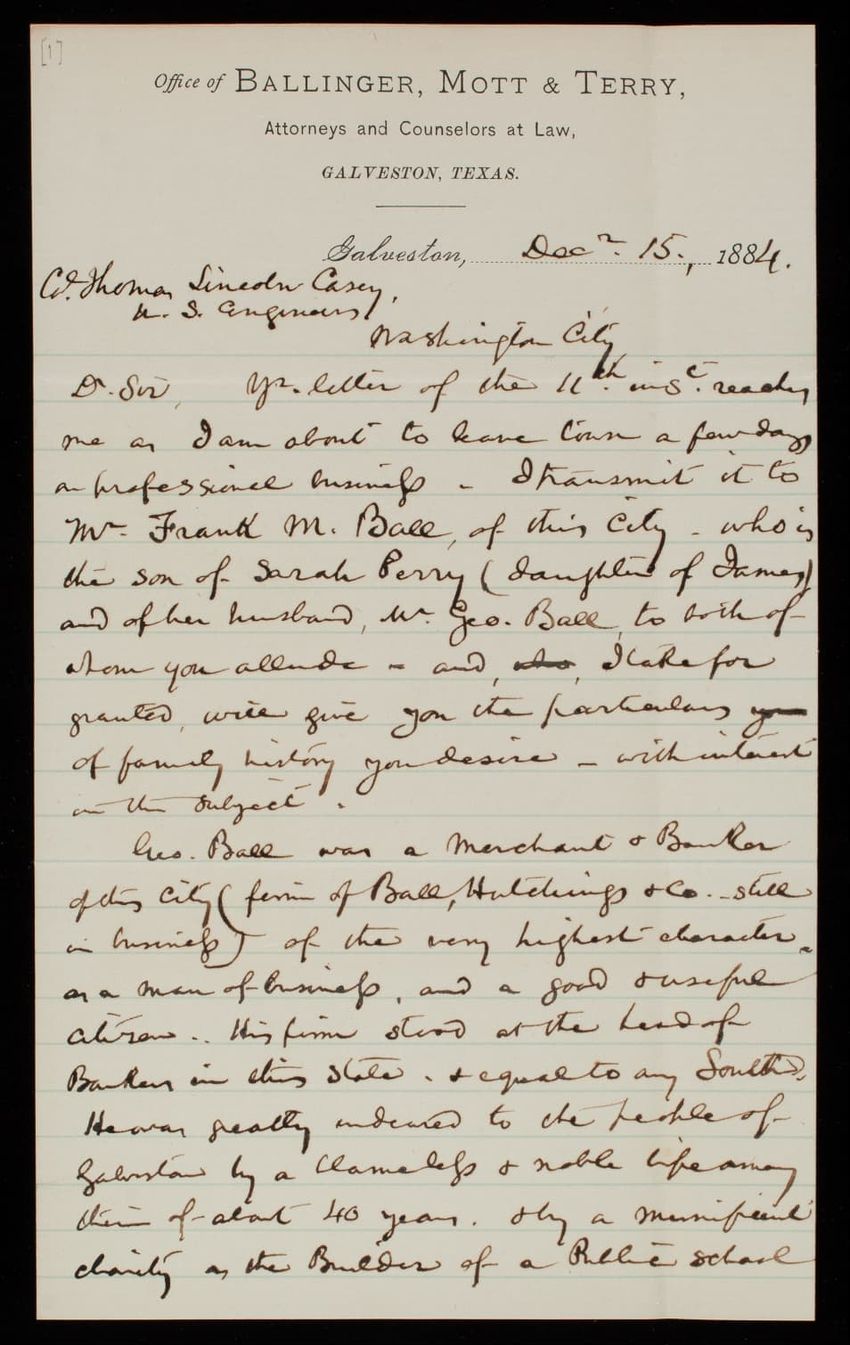 [1]
Office of BALLINGER, MOTT & TERRY,
Attorneys and Counselors at Law,
GALVESTON, TEXAS.
Galveston, Decr. 15., 1884.
Col. Thomas Lincoln Casey,
U. S. Engineers,
Washington City
Dr. Sir, Yr. letter of the 11th. inst. reaches
me as I am about to leave town a few days
on professional business - I transmit it to
Mr. Frank M. Ball, of this City - who is
the son of Sarah Perry (daughter of James)
and of her husband, Mr. Geo. Ball, to both of
whom you allude - and, who, I take for
granted, will give you the particulars you
of family history you desire - with interest
in the subject.
Geo. Ball was a Merchant & Banker
of this City (firm of Ball, Hutchings & Co. - still
in business) of the very highest character
as a man of business, and a good & useful
citizen.. His firm stood at the head of
Bankers in this State. & equal to any South.
He was greatly endeared to the people of
Galveston by a blameless & noble life among
them of about 40 years. & by a munificent
charity as the Builder of a Public School